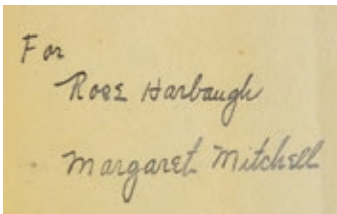 For
Rose Harbaugh
Margaret Mitchell